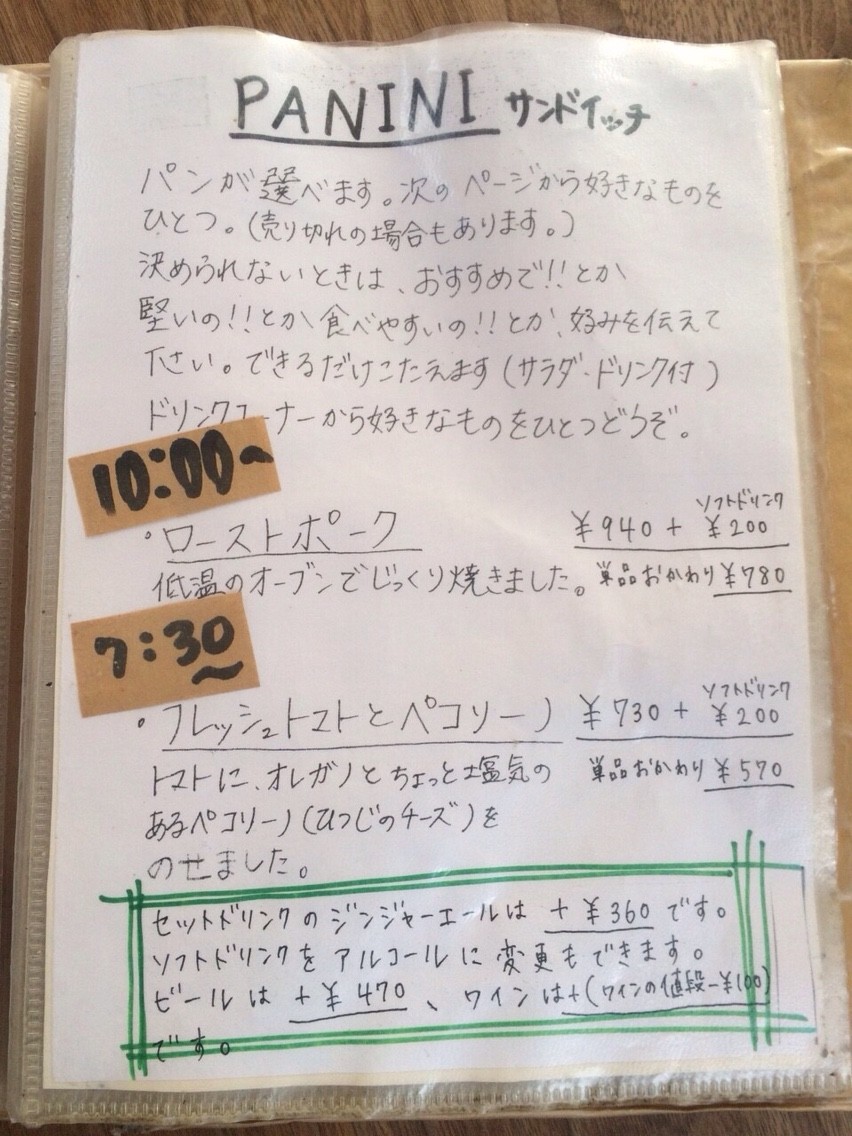 PANINI サンドイッチ
パンが選べます。次のページから好きなものを
ひとつ。(売り切れの場合もあります。)
決められないときは、おすすめで!!とか
堅いの!!とか食べやすいの!!とか、好みを伝えて
下さい。できるだけこたえます(サラダ・ドリンク付)
ドリンクコーナーから好きなものをひとつどうぞ。
10:00~
ソフトドリンク
・ローストポーク ¥940 + ¥200
低温のオーブンでじっくり焼きました。 単品おかわり ¥780
7:30~
ソフトドリンク
・フレッシュトマトとペコリーノ ¥730 + ¥200
トマトに、オレガノとちょっと塩気の 単品おかわり ¥570
あるペコリーノ(ひつじのチーズ)を
のせました。
セットドリンクのジンジャーエールは +¥360 です。
ソフトドリンクをアルコールに変更もできます。
ビールは +¥470、ワインは+(ワインの値段-¥100)
です。